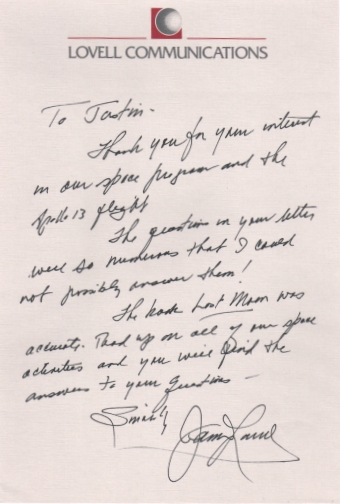 LOVELL COMMUNICATIONS
To Justin -
Thank you for your interest
in our space program and the
Apollo 13 flight
The questions in your letter
were so numerous that I could
not possibly answer them!
The book Lost Moon was
accurate. Read up on all of our space
activities and you will find the
answers to your questions -
Sincerely
James Lovell